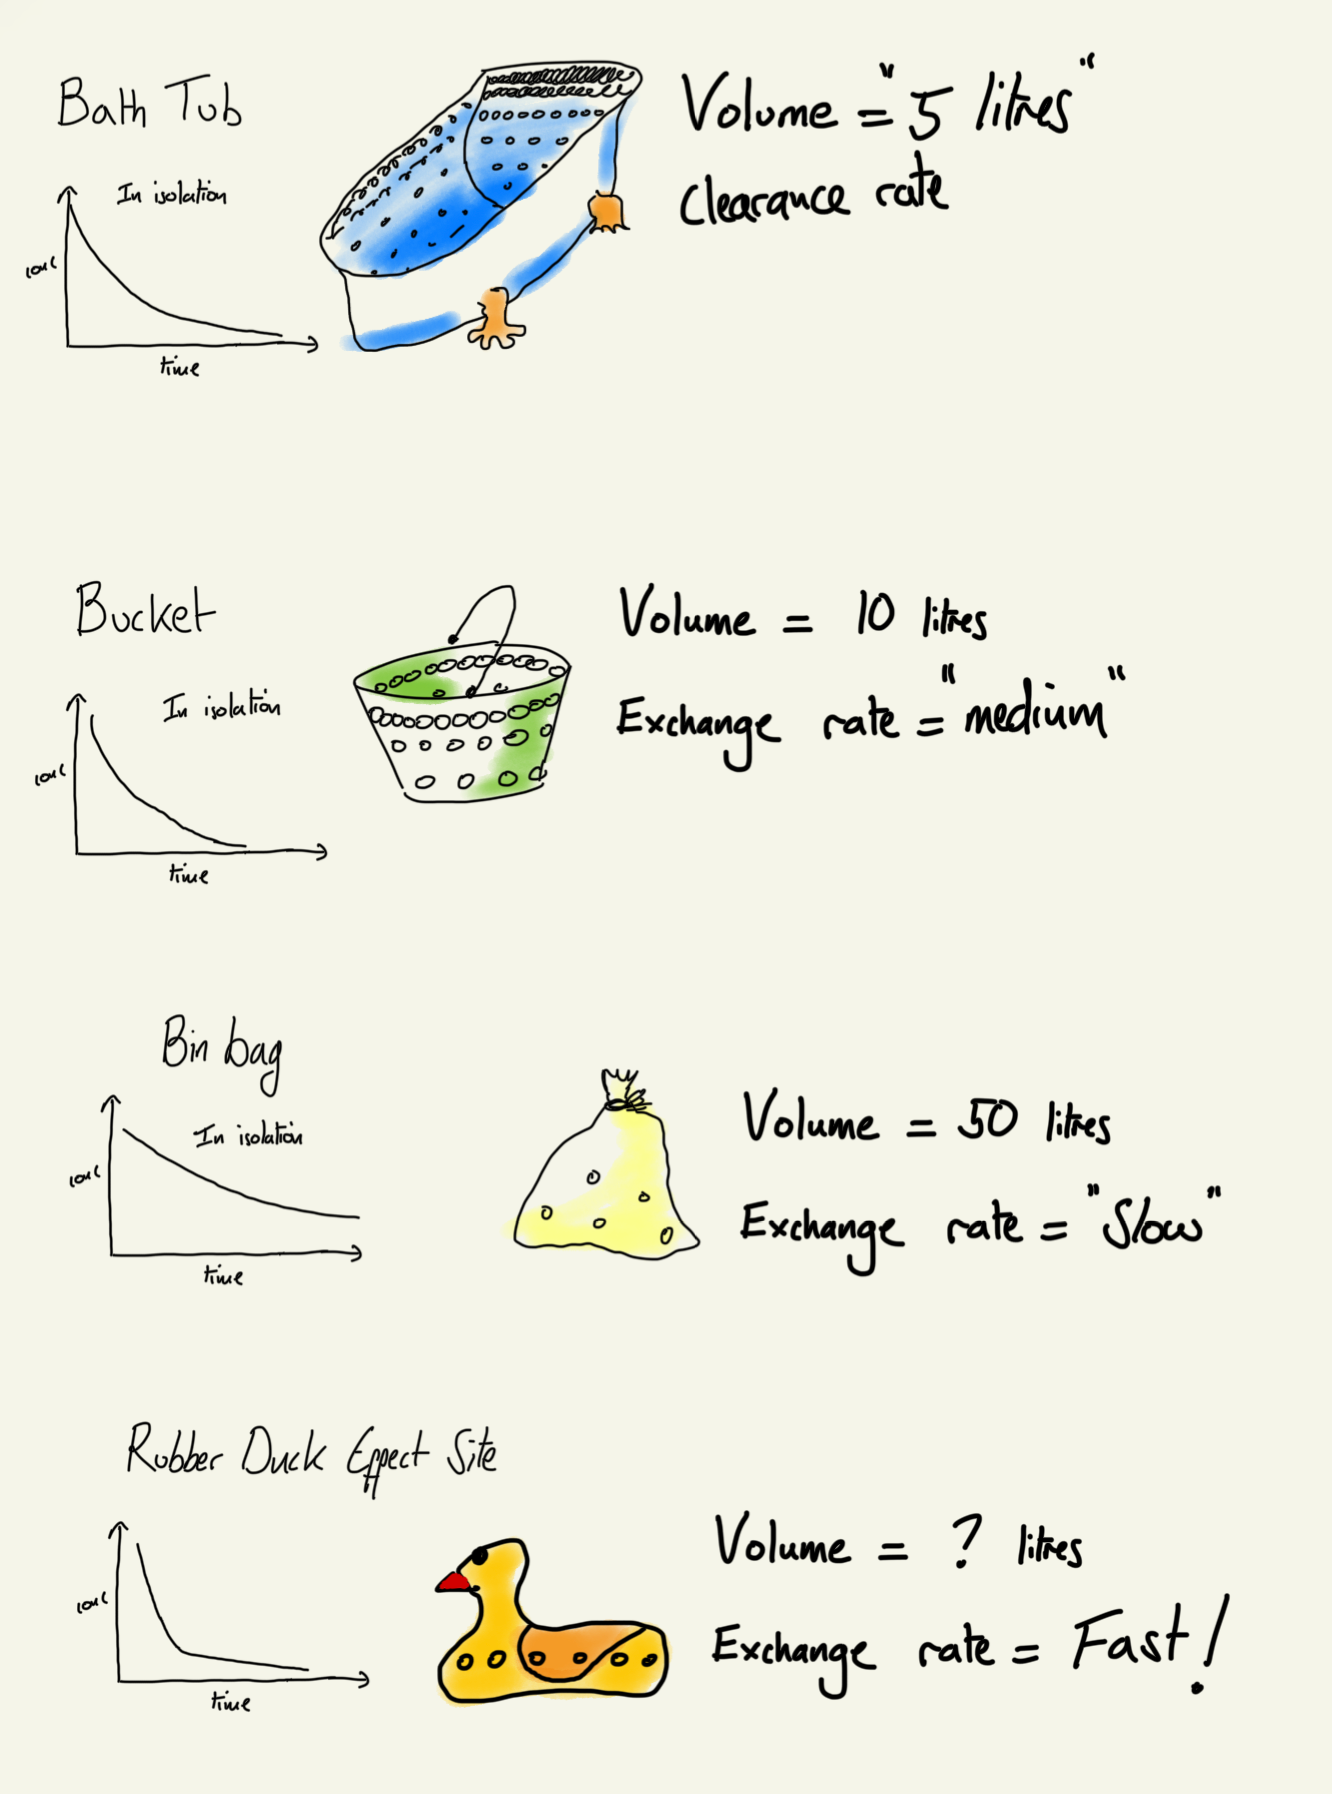 Bath Tub
Volume = "5 litres"
Clearance rate
In isolation
conc
time
Bucket
Volume = 10 litres
Exchange rate = "medium"
In isolation
conc
time
Bin bag
Volume = 50 litres
In isolation
conc
Exchange rate = "Slow"
time
Rubber Duck Effect Site
Volume = ? litres
conc
Exchange rate = Fast!
time